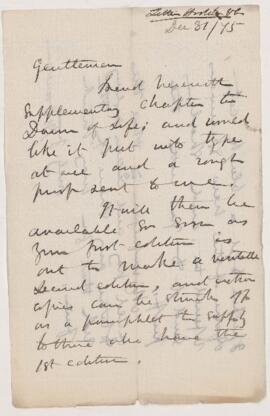 Dec 31/75
Gentlemen
Send herewith
Supplementary Chapter to
Dawn of Life; and would
like it put into type
at once and a rough
proof sent to me.
It will then be
available so soon as
your first edition is
out to make a veritable
second edition, and extra
copies can be struck off
as a pamphlet to supply
to those who have the
1st edition.